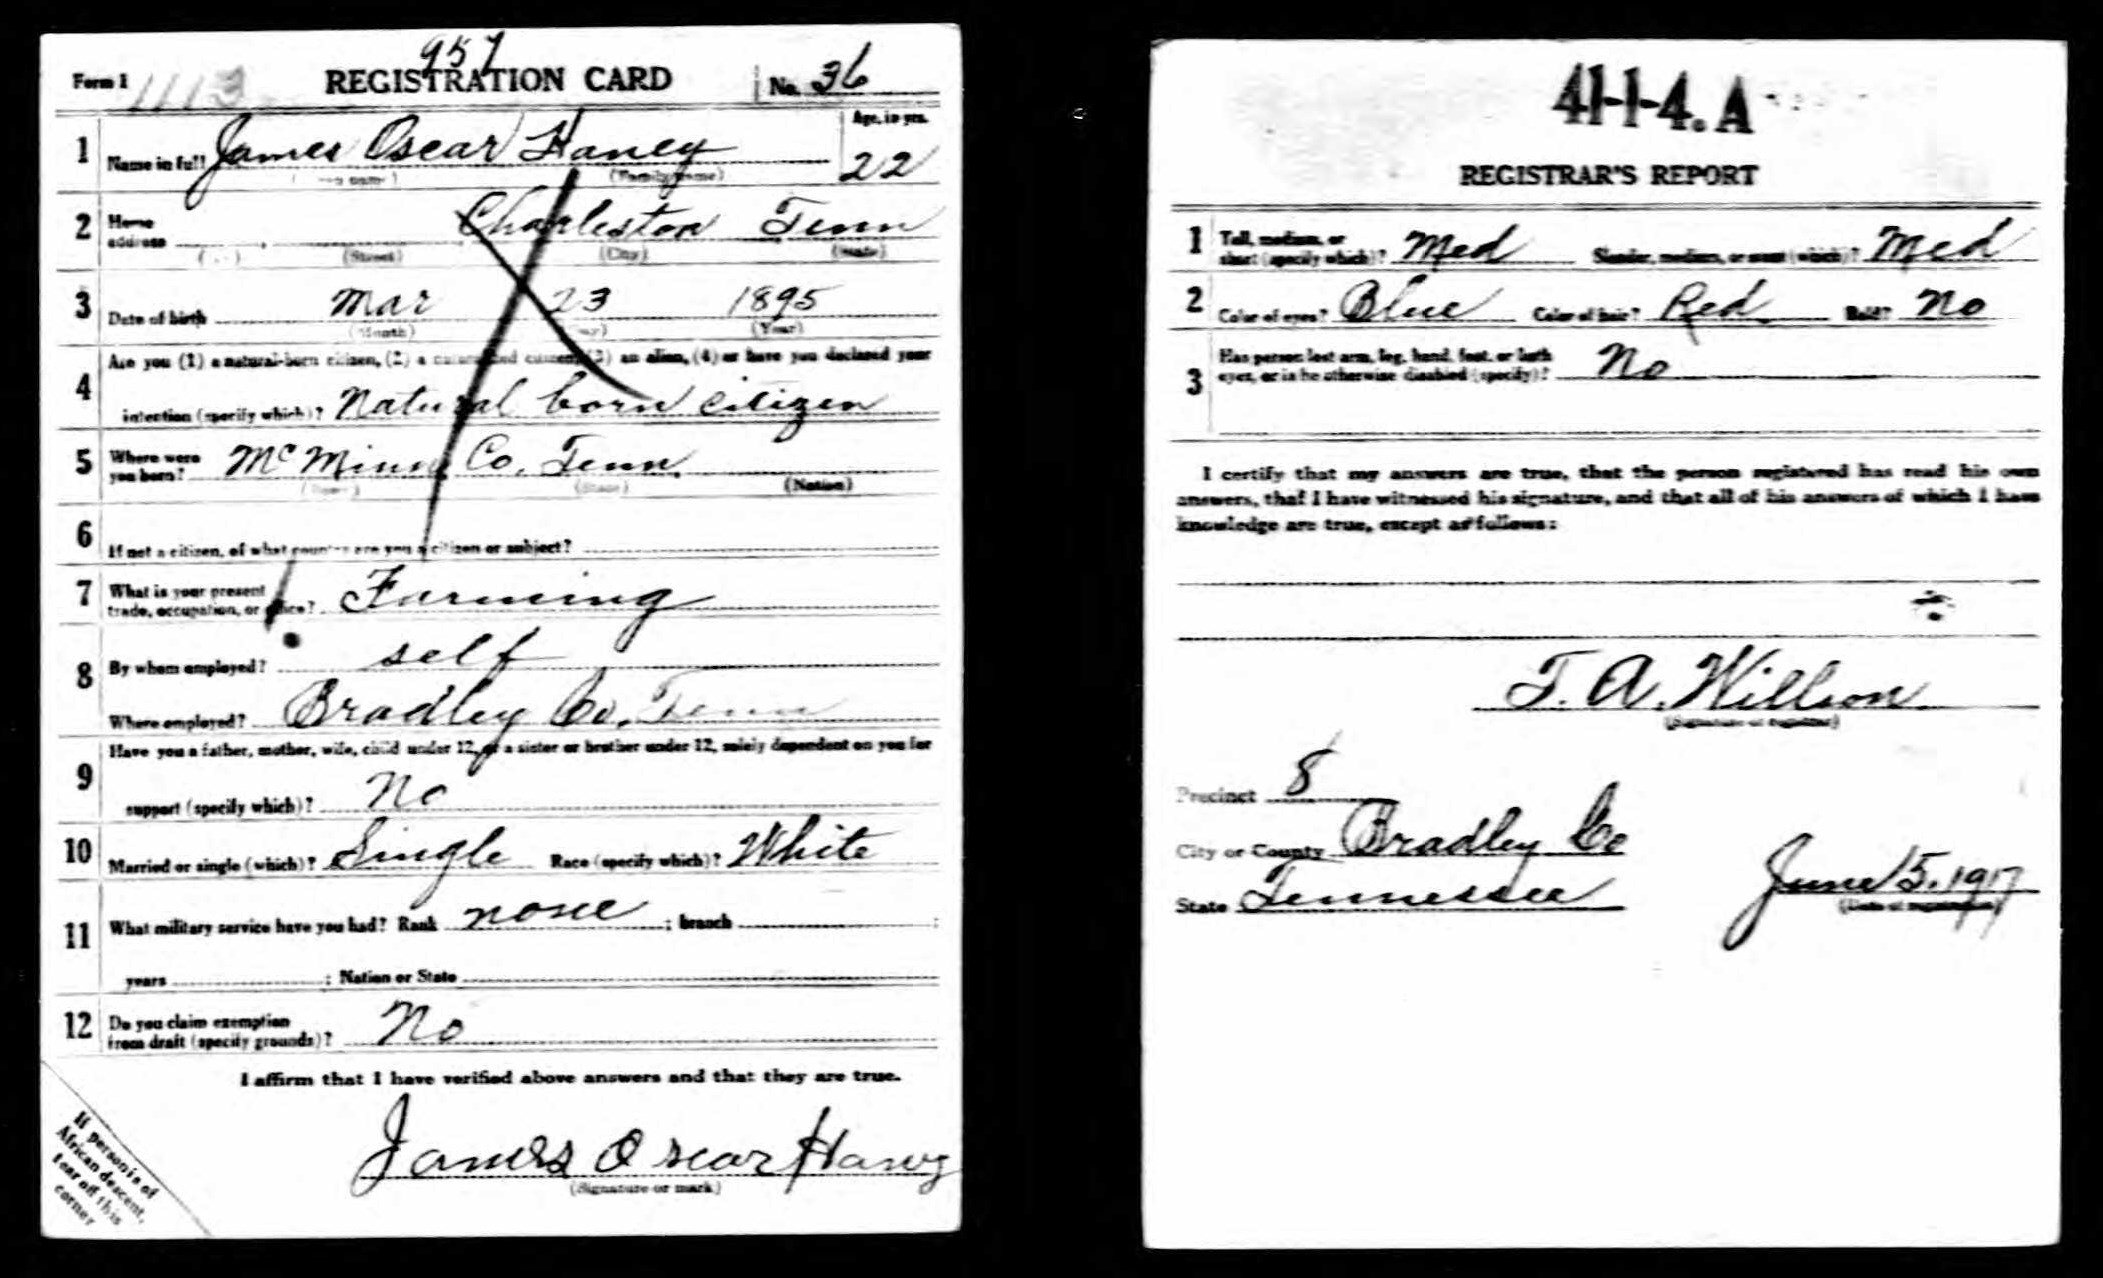 957
Form 1 1113 REGISTRATION CARD No. 36
1 Name in full James Oscar Haney Age, in yrs. 22
(Family name)
2 Home address Charleston Tenn
(Street) (City) (State)
3 Date of birth Mar 23 1895
(Month) (Day) (Year)
4 Are you (1) a natural-born citizen, (2) a naturalized citizen, (3) an alien, (4) or have you declared your
intention (specify which)? Natural born citizen
5 Where were you born? McMinn Co. Tenn.
(Town) (State) (Nation)
6 If not a citizen, of what country are you a citizen or subject?
7 What is your present
trade, occupation, or office? Farming
8 By whom employed? self
Where employed? Bradley Co. Tenn
9 Have you a father, mother, wife, child under 12, or a sister or brother under 12, solely dependent on you for
support (specify which)? No
10 Married or single (which)? Single Race (specify which)? White
11 What military service have you had? Rank none ; branch ;
years ; Nation or State
12 Do you claim exemption
from draft (specify grounds)? No
I affirm that I have verified above answers and that they are true.
James Oscar Haney
(Signature or mark)
If person is of
African descent,
tear off this
corner
41-1-4. A
REGISTRAR'S REPORT
1 Tall, medium, or
short (specify which)? Med Slender, medium, or stout (which)? Med
2 Color of eyes? Blue Color of hair? Red Bald? No
3 Has person lost arm, leg, hand, foot, or both
eyes, or is he otherwise disabled (specify)? No
I certify that my answers are true, that the person registered has read his own
answers, that I have witnessed his signature, and that all of his answers of which I have
knowledge are true, except as follows:
T. A. Willson
(Signature of registrar)
Precinct 8
City or County Bradley Co
State Tennessee June 5. 1917
(Date of registration)